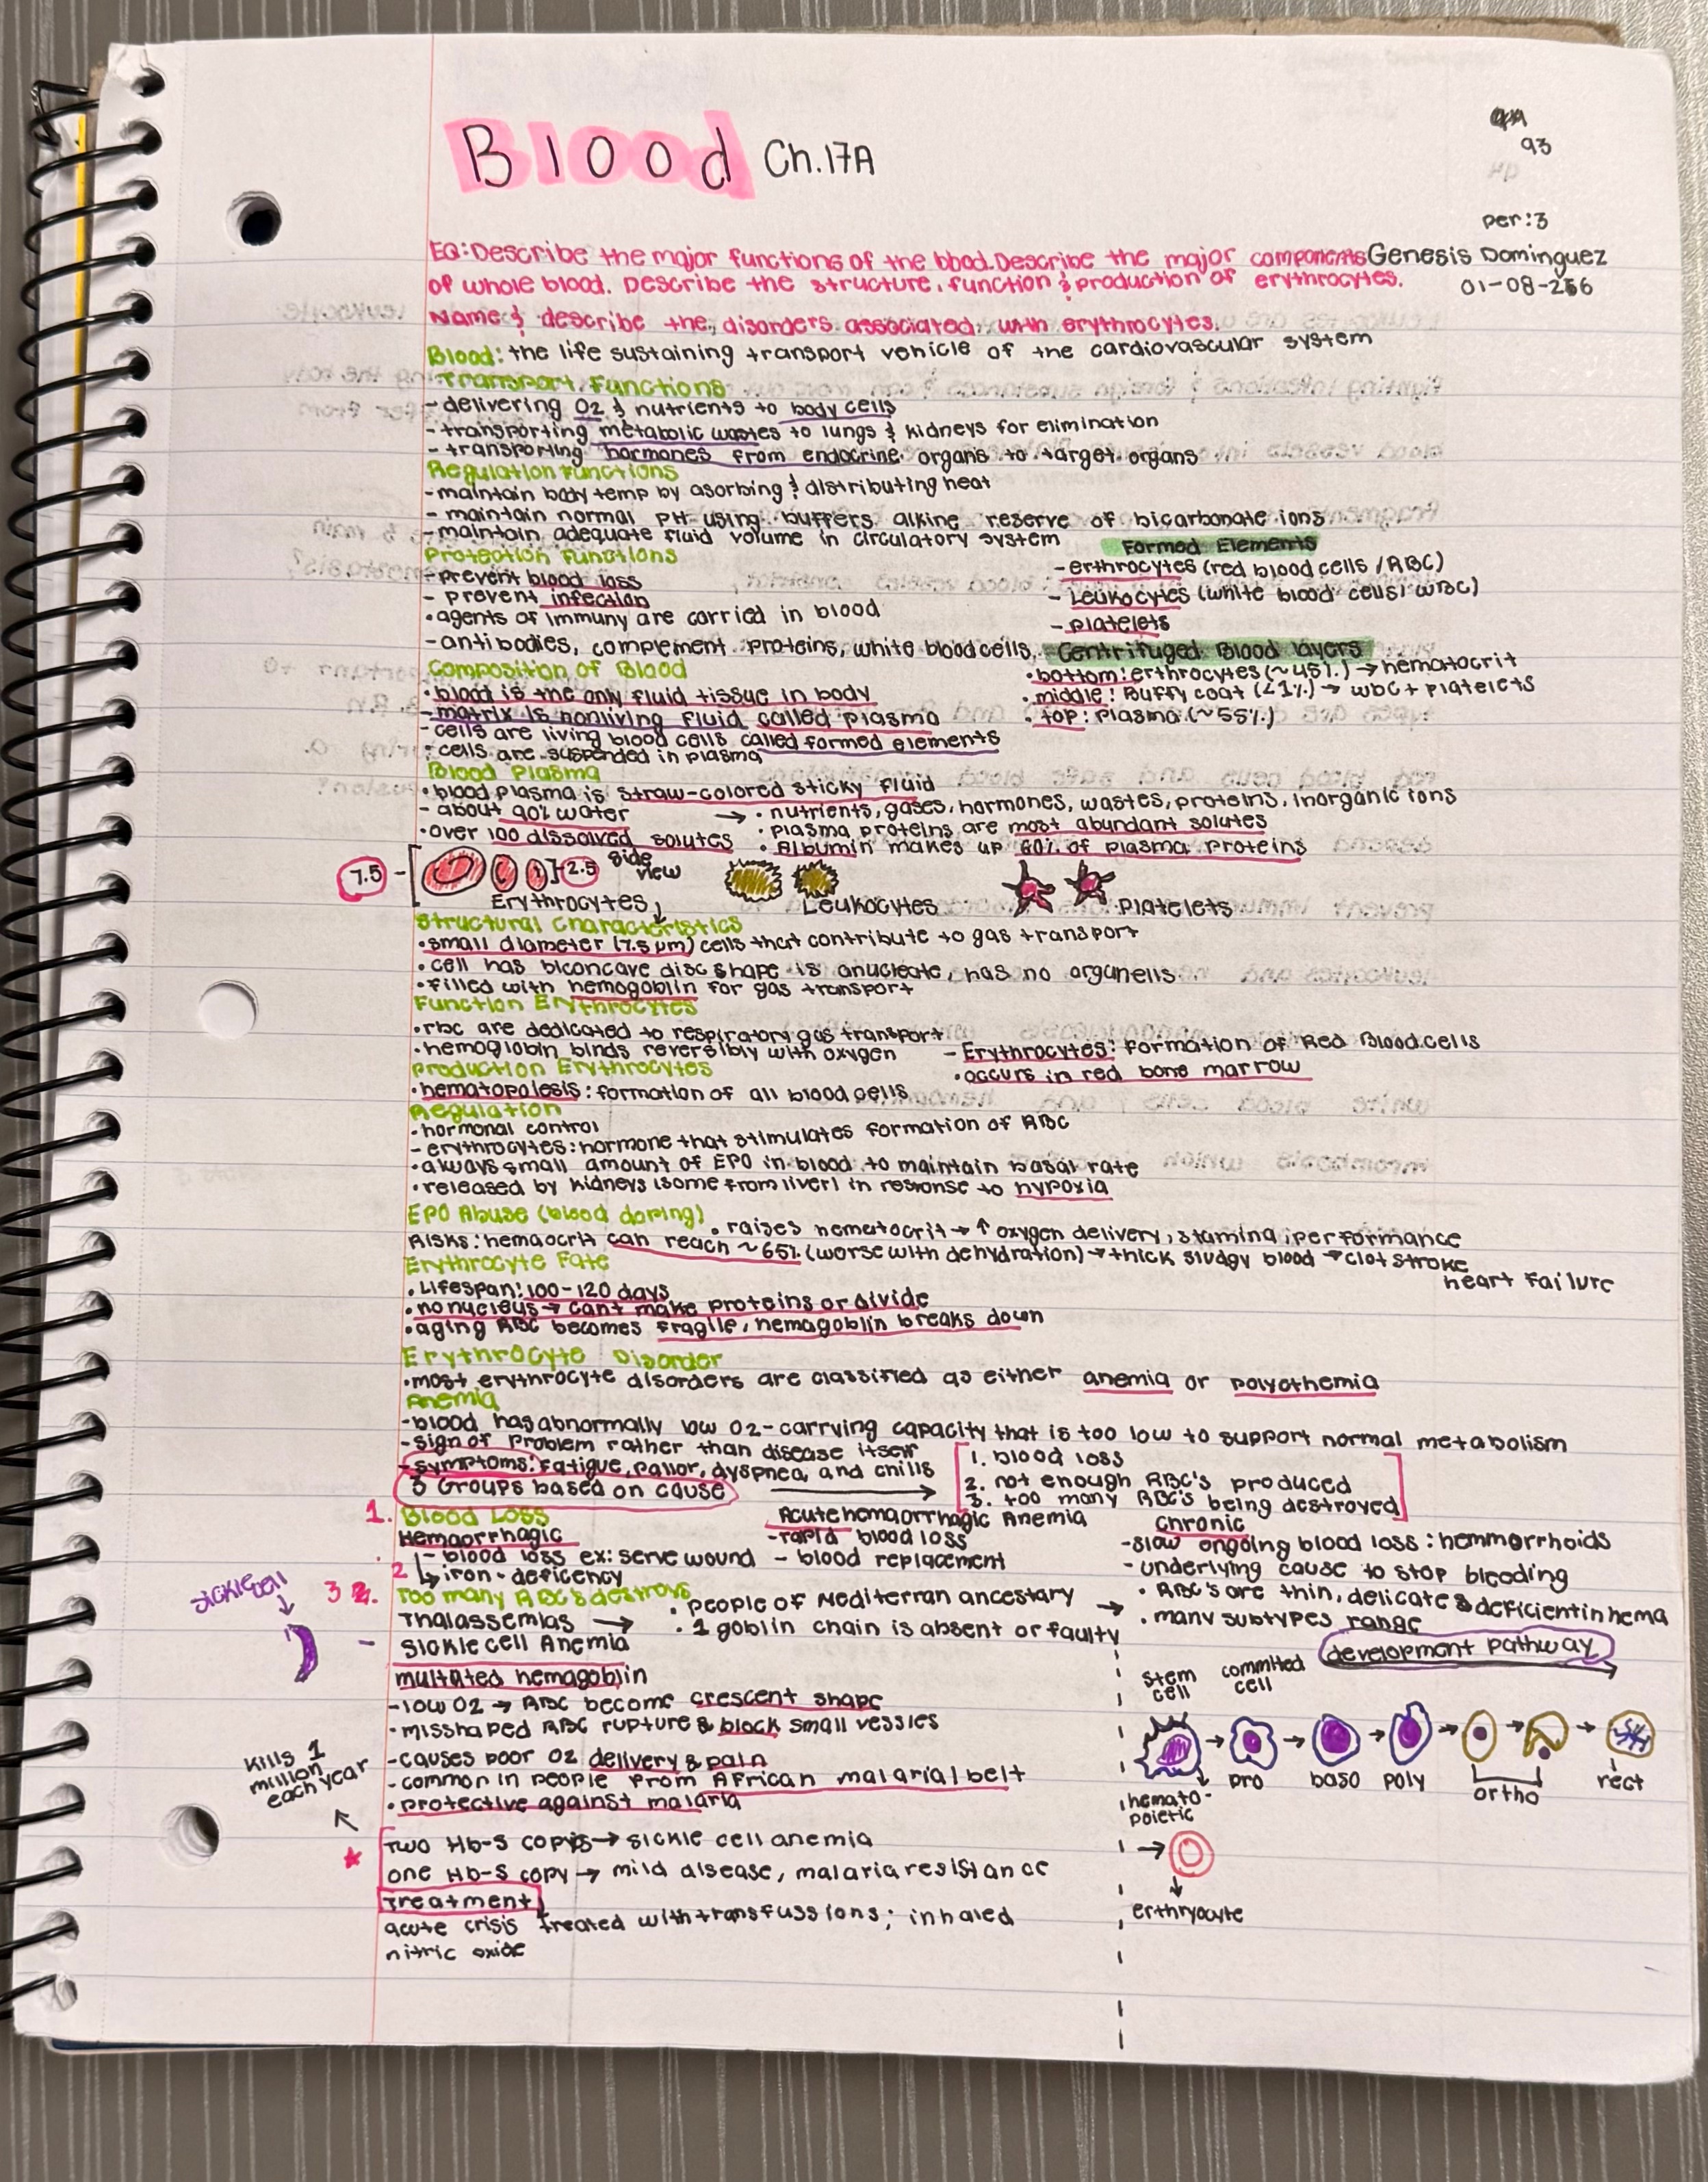 Blood Ch.17A
93
per:3
EQ: Describe the major functions of the blood. Describe the major components Genesis Dominguez
of whole blood. Describe the structure, function & production of erythrocytes. 01-08-256
Name & describe the disorders associated with erythrocytes.
Blood: the life sustaining transport vehicle of the cardiovascular system
Transport Functions
- delivering O2 & nutrients to body cells
- transporting metabolic wastes to lungs & kidneys for elimination
- transporting hormones from endocrine organs to target organs
Regulation Functions
- maintain body temp by asorbing & distributing heat
- maintain normal PH using buffers alkine reserve of bicarbonate ions
- maintain adequate fluid volume in circulatory system
Protection Functions
- prevent blood loss
- prevent infection
• agents of immuny are carried in blood
- antibodies, complement proteins, white blood cells
Formed Elements
- erthrocytes (red blood cells / RBC)
- Leukocytes (white blood cells / WBC)
- Platelets
Centrifuged Blood layers
• bottom: erthrocytes (~45%) → hematocrit
• middle: Buffy coat (<1%) → WBC + Platelets
• top: Plasma (~55%)
Composition of Blood
• blood is the only fluid tissue in body
- matrix is nonliving fluid called plasma
- cells are living blood cells called formed elements
• cells are suspended in plasma
Blood Plasma
• blood plasma is straw-colored sticky fluid
- about 90% water
• over 100 dissolved solutes
→ • nutrients, gases, hormones, wastes, proteins, inorganic ions
• plasma proteins are most abundant solutes
• Albumin makes up 60% of plasma proteins
7.5 - 2.5 side view
Erythrocytes Leukocytes Platelets
Structural Characteristics
• small diameter (7.5 µm) cells that contribute to gas transport
• cell has biconcave disc shape is anucleate, has no organells
• filled with hemogoblin for gas transport
Function Erythrocytes
• rbc are dedicated to respiratory gas transport
• hemoglobin binds reversibly with oxygen
Production Erythrocytes
• hematopoiesis: formation of all blood cells
- Erythrocytes: formation of Red Blood cells
• occurs in red bone marrow
Regulation
• hormonal control
- erythrocytes: hormone that stimulates formation of RBC
• always small amount of EPO in blood to maintain basal rate
• released by kidneys (some from liver) in response to hypoxia
EPO Abuse (blood doping) • raises hematocrit → ↑ oxygen delivery, stamina, performance
Risks: hemaocrit can reach ~65% (worse with dehydration) → thick sludgy blood → clot stroke
heart failure
Erythrocyte Fate
• Lifespan: 100-120 days
• no nucleus → can't make proteins or divide
• aging RBC becomes fragile, hemagoblin breaks down
Erythrocyte Disorder
• most erythrocyte disorders are classified as either anemia or polycthemia
Anemia
- blood has abnormally low O2-carrying capacity that is too low to support normal metabolism
- sign of problem rather than disease itself
- symptoms: Fatigue, pallor, dyspnea, and chills
3 Groups based on cause →
1. blood loss
2. not enough RBC's produced
3. too many RBC's being destroyed
1. Blood Loss
Hemaorrhagic
- blood loss ex: serve wound
2 ↳ iron-deficency
Acute hemaorrhagic Anemia
- rapid blood loss
- blood replacement
Chronic
- slow ongoing blood loss: hemmorrhoids
- underlying cause to stop blooding
3 Too many RBC's destroys
Thalassemias → • people of Mediterran ancestary
• 1 goblin chain is absent or faulty
→ • RBC's are thin, delicate & deficient in hema
• many subtypes range
sickle cell
- Sickle cell Anemia
multated hemagoblin
- low O2 → RBC become crescent shape
• misshaped RBC rupture & block small vessles
- causes poor O2 delivery & pain
- common in people from African malarial belt
• protective against malaria
kills 1
million
each year
Two Hb-S copys → sickle cell anemia
one Hb-S copy → mild disease, malaria resistance
Treatment
acute crisis treated with transfussions; inhaled
nitric oxide
development pathway
stem cell
commited cell
hemato-
poietic
pro baso poly ortho rect
→
erthryocyte